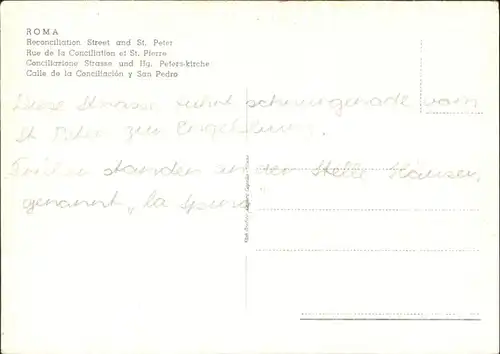 ROMA
Reconciliation Street and St. Peter
Rue de la Conciliation et St. Pierre
Conciliazione Strasse und Hg. Peters-kirche
Calle de la Conciliación y San Pedro
Diese Strasse führt schnurgerade vom
St. Peter zur Engelsburg.
Früher standen an der Stelle Häuser,
genannt „la Spina"